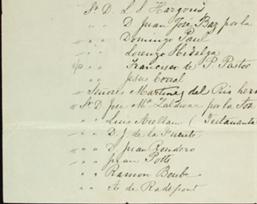 Sr. D. L. S. Hargous
" " " Juan José Baz por la
" " " Domingo Paul
" " " Lorenzo Hidalga
" " " Francisco de P. Pastor
" " " Jesus
Señores Martinez del Rio her
Sr. D. José Ma. Zaldivar por la Sra
" " " Luis Arellan (
" " " D. J. de la Fuente
" " " D. Juan Rondero
" " " Juan Potts
" " " Ramon
" " " A. de Radepont